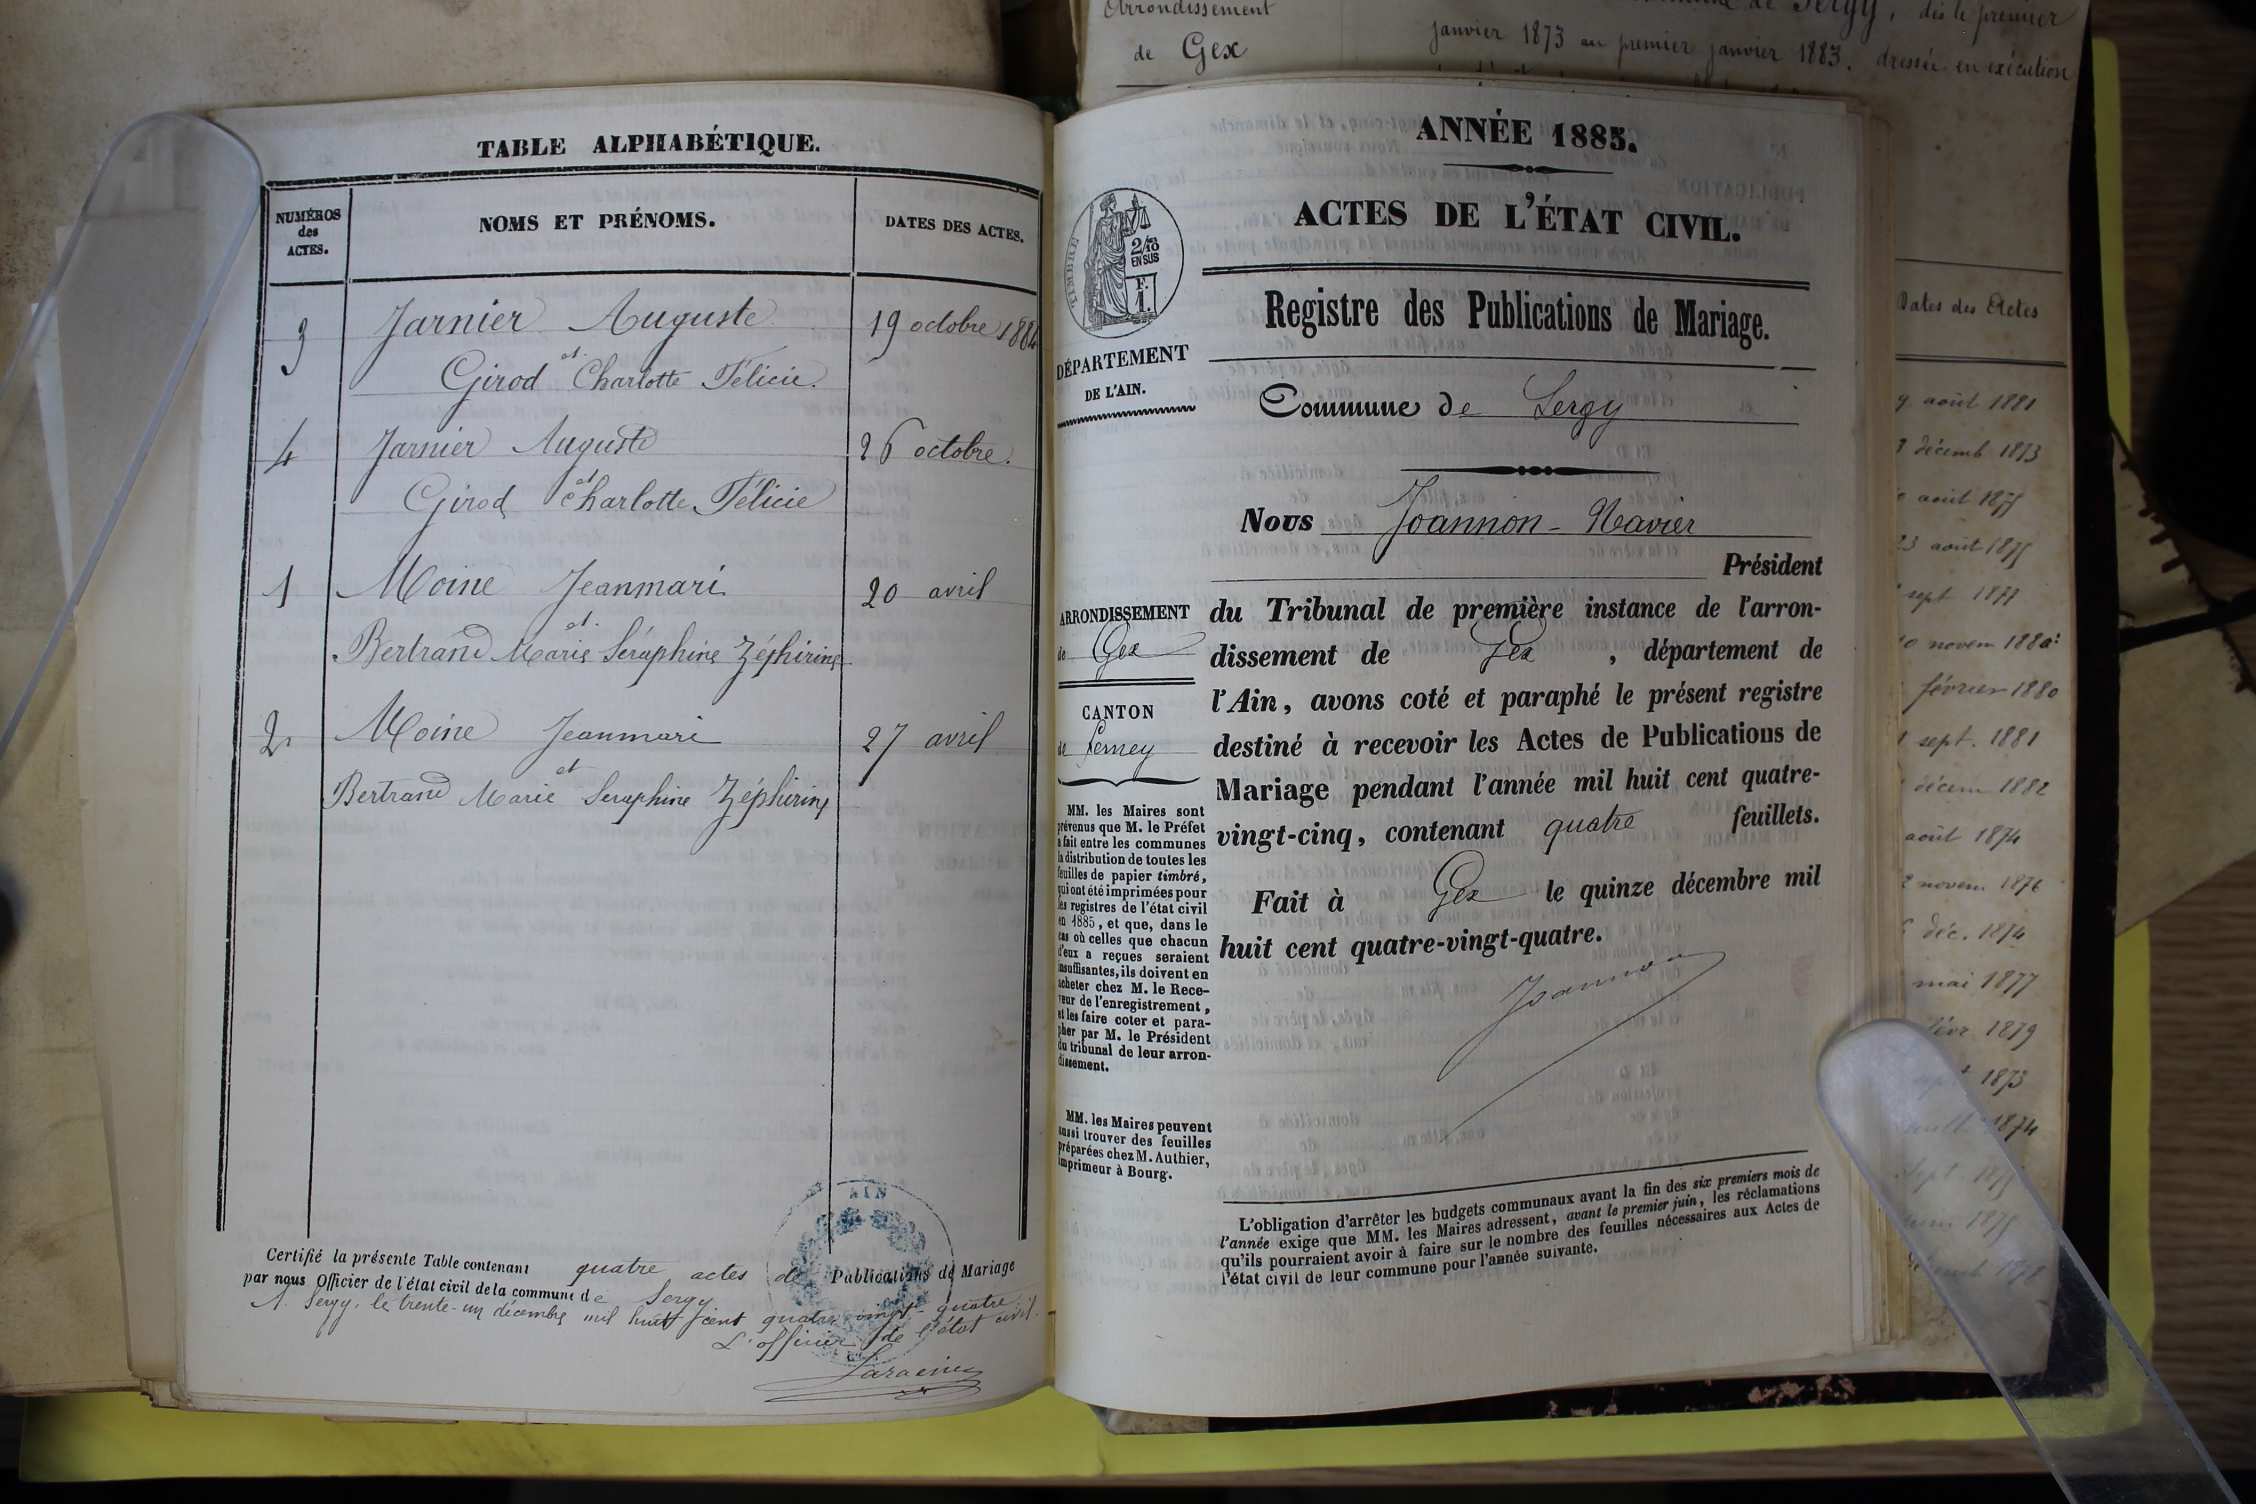 TABLE ALPHABÉTIQUE.
NUMÉROS des ACTES.
NOMS ET PRÉNOMS.
DATES DES ACTES.
3 Jarnier Auguste 19 octobre 1884
et
Girod Charlotte Félicie.
4 Jarnier Auguste 26 octobre.
et
Girod Charlotte Félicie
1 Moine Jeanmari 20 avril
et.
Bertrand Marie Séraphine Zéphirine
2 Moine Jeanmari 27 avril
et
Bertrand Marie Seraphine Zéphirine
Certifié la présente Table contenant quatre actes de Publications de Mariage
par nous Officier de l'état civil de la commune de Sergy
A Sergy, le trente-un décembre mil huit cent quatre vingt-quatre.
L'officier de l'état civil.
AIN
ANNÉE 1885.
ACTES DE L'ÉTAT CIVIL.
TIMBRE
2/10
EN SUS
F.
1.
Registre des Publications de Mariage.
DÉPARTEMENT
DE L'AIN.
Commune de Sergy
Nous Joannon-Navier
Président
du Tribunal de première instance de l'arron-
dissement de Gex, département de
l'Ain, avons coté et paraphé le présent registre
destiné à recevoir les Actes de Publications de
Mariage pendant l'année mil huit cent quatre-
vingt-cinq, contenant quatre feuillets.
Fait à Gex le quinze décembre mil
huit cent quatre-vingt-quatre.
Joannon
ARRONDISSEMENT
de Gex
CANTON
de Ferney
MM. les Maires sont
prévenus que M. le Préfet
a fait entre les communes
la distribution de toutes les
feuilles de papier timbré,
qui ont été imprimées pour
les registres de l'état civil
en 1885, et que, dans le
cas où celles que chacun
d'eux a reçues seraient
insuffisantes, ils doivent en
acheter chez M. le Rece-
veur de l'enregistrement,
et les faire coter et para-
pher par M. le Président
du tribunal de leur arron-
dissement.
MM. les Maires peuvent
aussi trouver des feuilles
préparées chez M. Authier,
imprimeur à Bourg.
L'obligation d'arrêter les budgets communaux avant la fin des six premiers mois de
l'année exige que MM. les Maires adressent, avant le premier juin, les réclamations
qu'ils pourraient avoir à faire sur le nombre des feuilles nécessaires aux Actes de
l'état civil de leur commune pour l'année suivante.
Arrondissement
de Gex
de Sergy, dès le premier
janvier 1873 au premier janvier 1883. dressée en exécution
Dates des Actes
août 1881
décemb 1873
août 1875
23 août 1875
sept 1877
novem 1880
février 1880
sept. 1881
décem 1882
août 1874
novem 1876
déc. 1874
mai 1877
1879
1873
1874